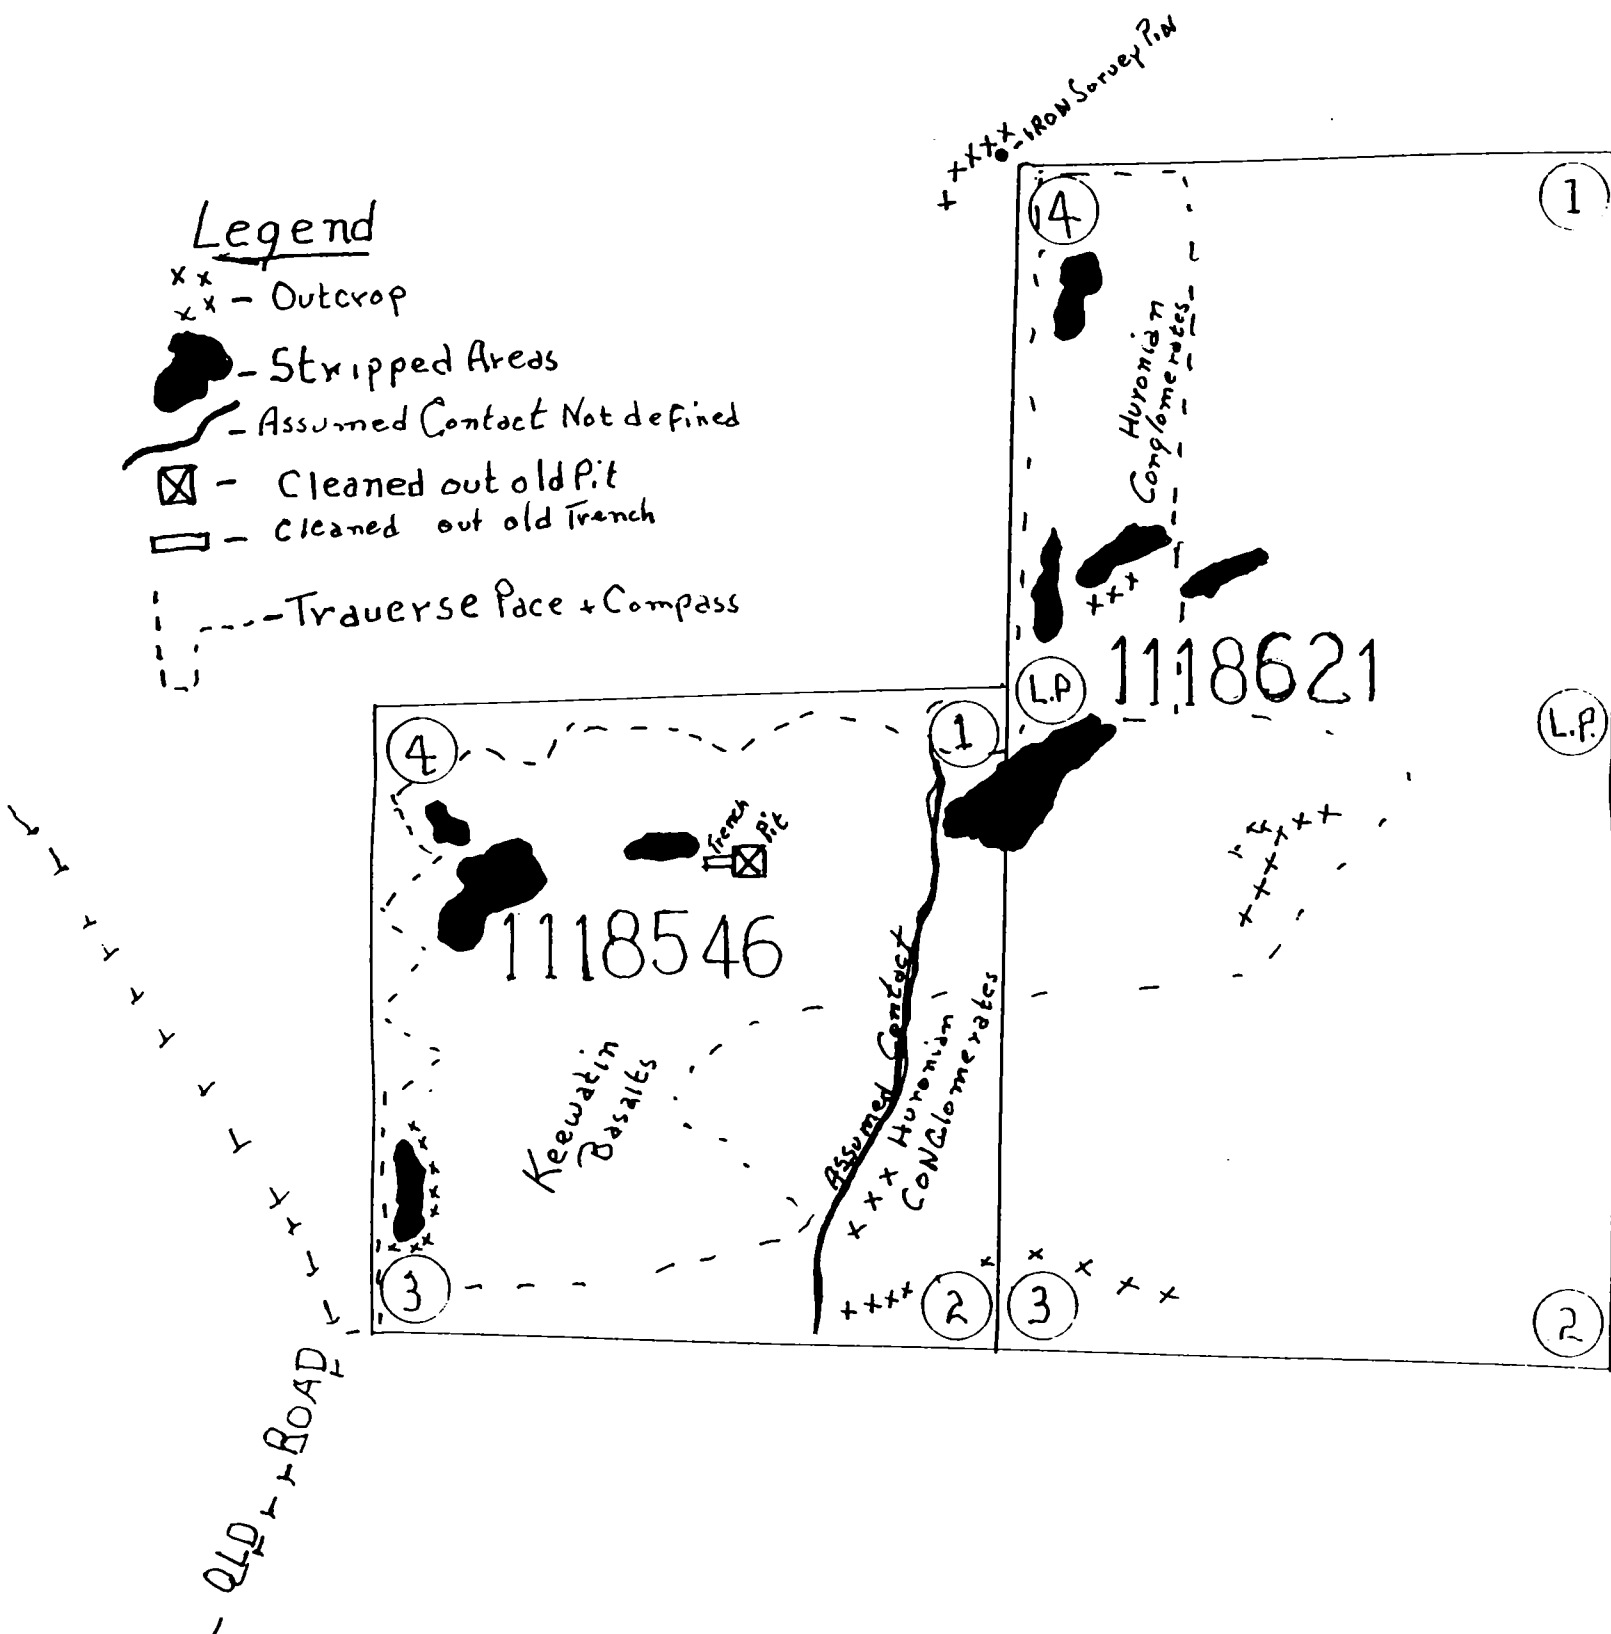 IRON Survey PiN
Legend
x x
x x - Outcrop
- Stripped Areas
- Assumed Contact Not defined
- Cleaned out old Pit
- Cleaned out old Trench
- Traverse Pace + Compass
4
1
Huronian
Conglomerates
L.P
1118621
L.P.
4
1
Trench
Pit
1118546
Keewatin
Basalts
Assumed Contact
Huronian
CONGlomerates
3
2
3
2
OLD ROAD